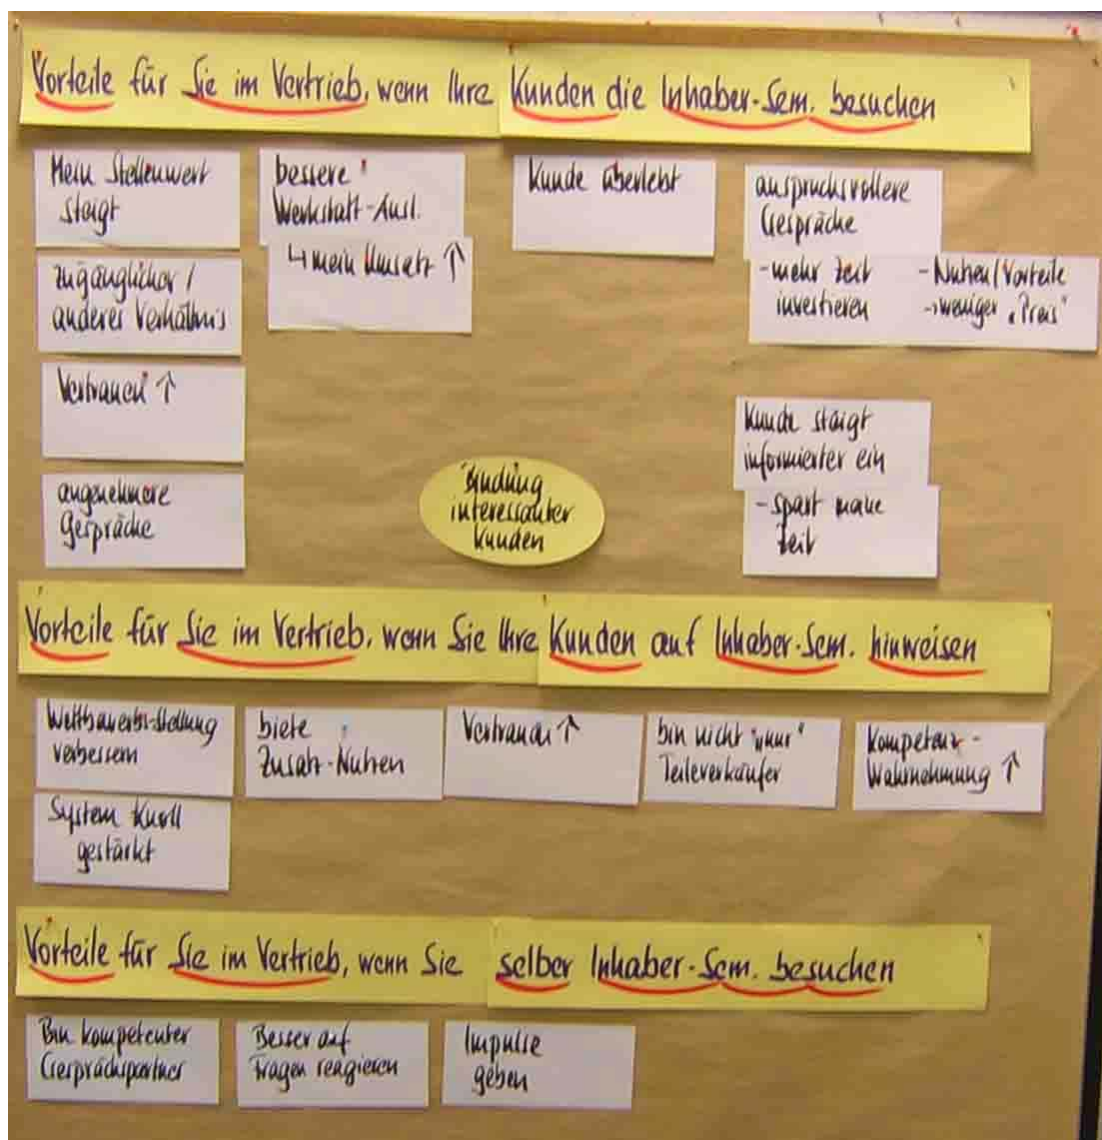 Vorteile für Sie im Vertrieb, wenn Ihre Kunden die Inhaber-Sem. besuchen
Mein Stellenwert
steigt
zugänglicher /
anderes Verhältnis
Vertrauen ↑
angenehmere
Gespräche
bessere
Werkstatt-Ausl.
↳ mein Umsatz ↑
Kunde überlebt
anspruchsvollere
Gespräche
-mehr Zeit
investieren
- Nutzen/Vorteile
→weniger "Preis"
Kunde steigt
informierter ein
- spart meine
Zeit
Bindung
interessanter
Kunden
Vorteile für Sie im Vertrieb, wenn Sie Ihre Kunden auf Inhaber-Sem. hinweisen
Wettbewerbs-Stellung
verbessern
System Knoll
gestärkt
biete
Zusatz-Nutzen
Vertrauen ↑
bin nicht "nur"
Teileverkäufer
Kompetenz-
Wahrnehmung ↑
Vorteile für Sie im Vertrieb, wenn Sie selber Inhaber-Sem. besuchen
Bin kompetenter
Gesprächspartner
Besser auf
Fragen reagieren
Impulse
geben